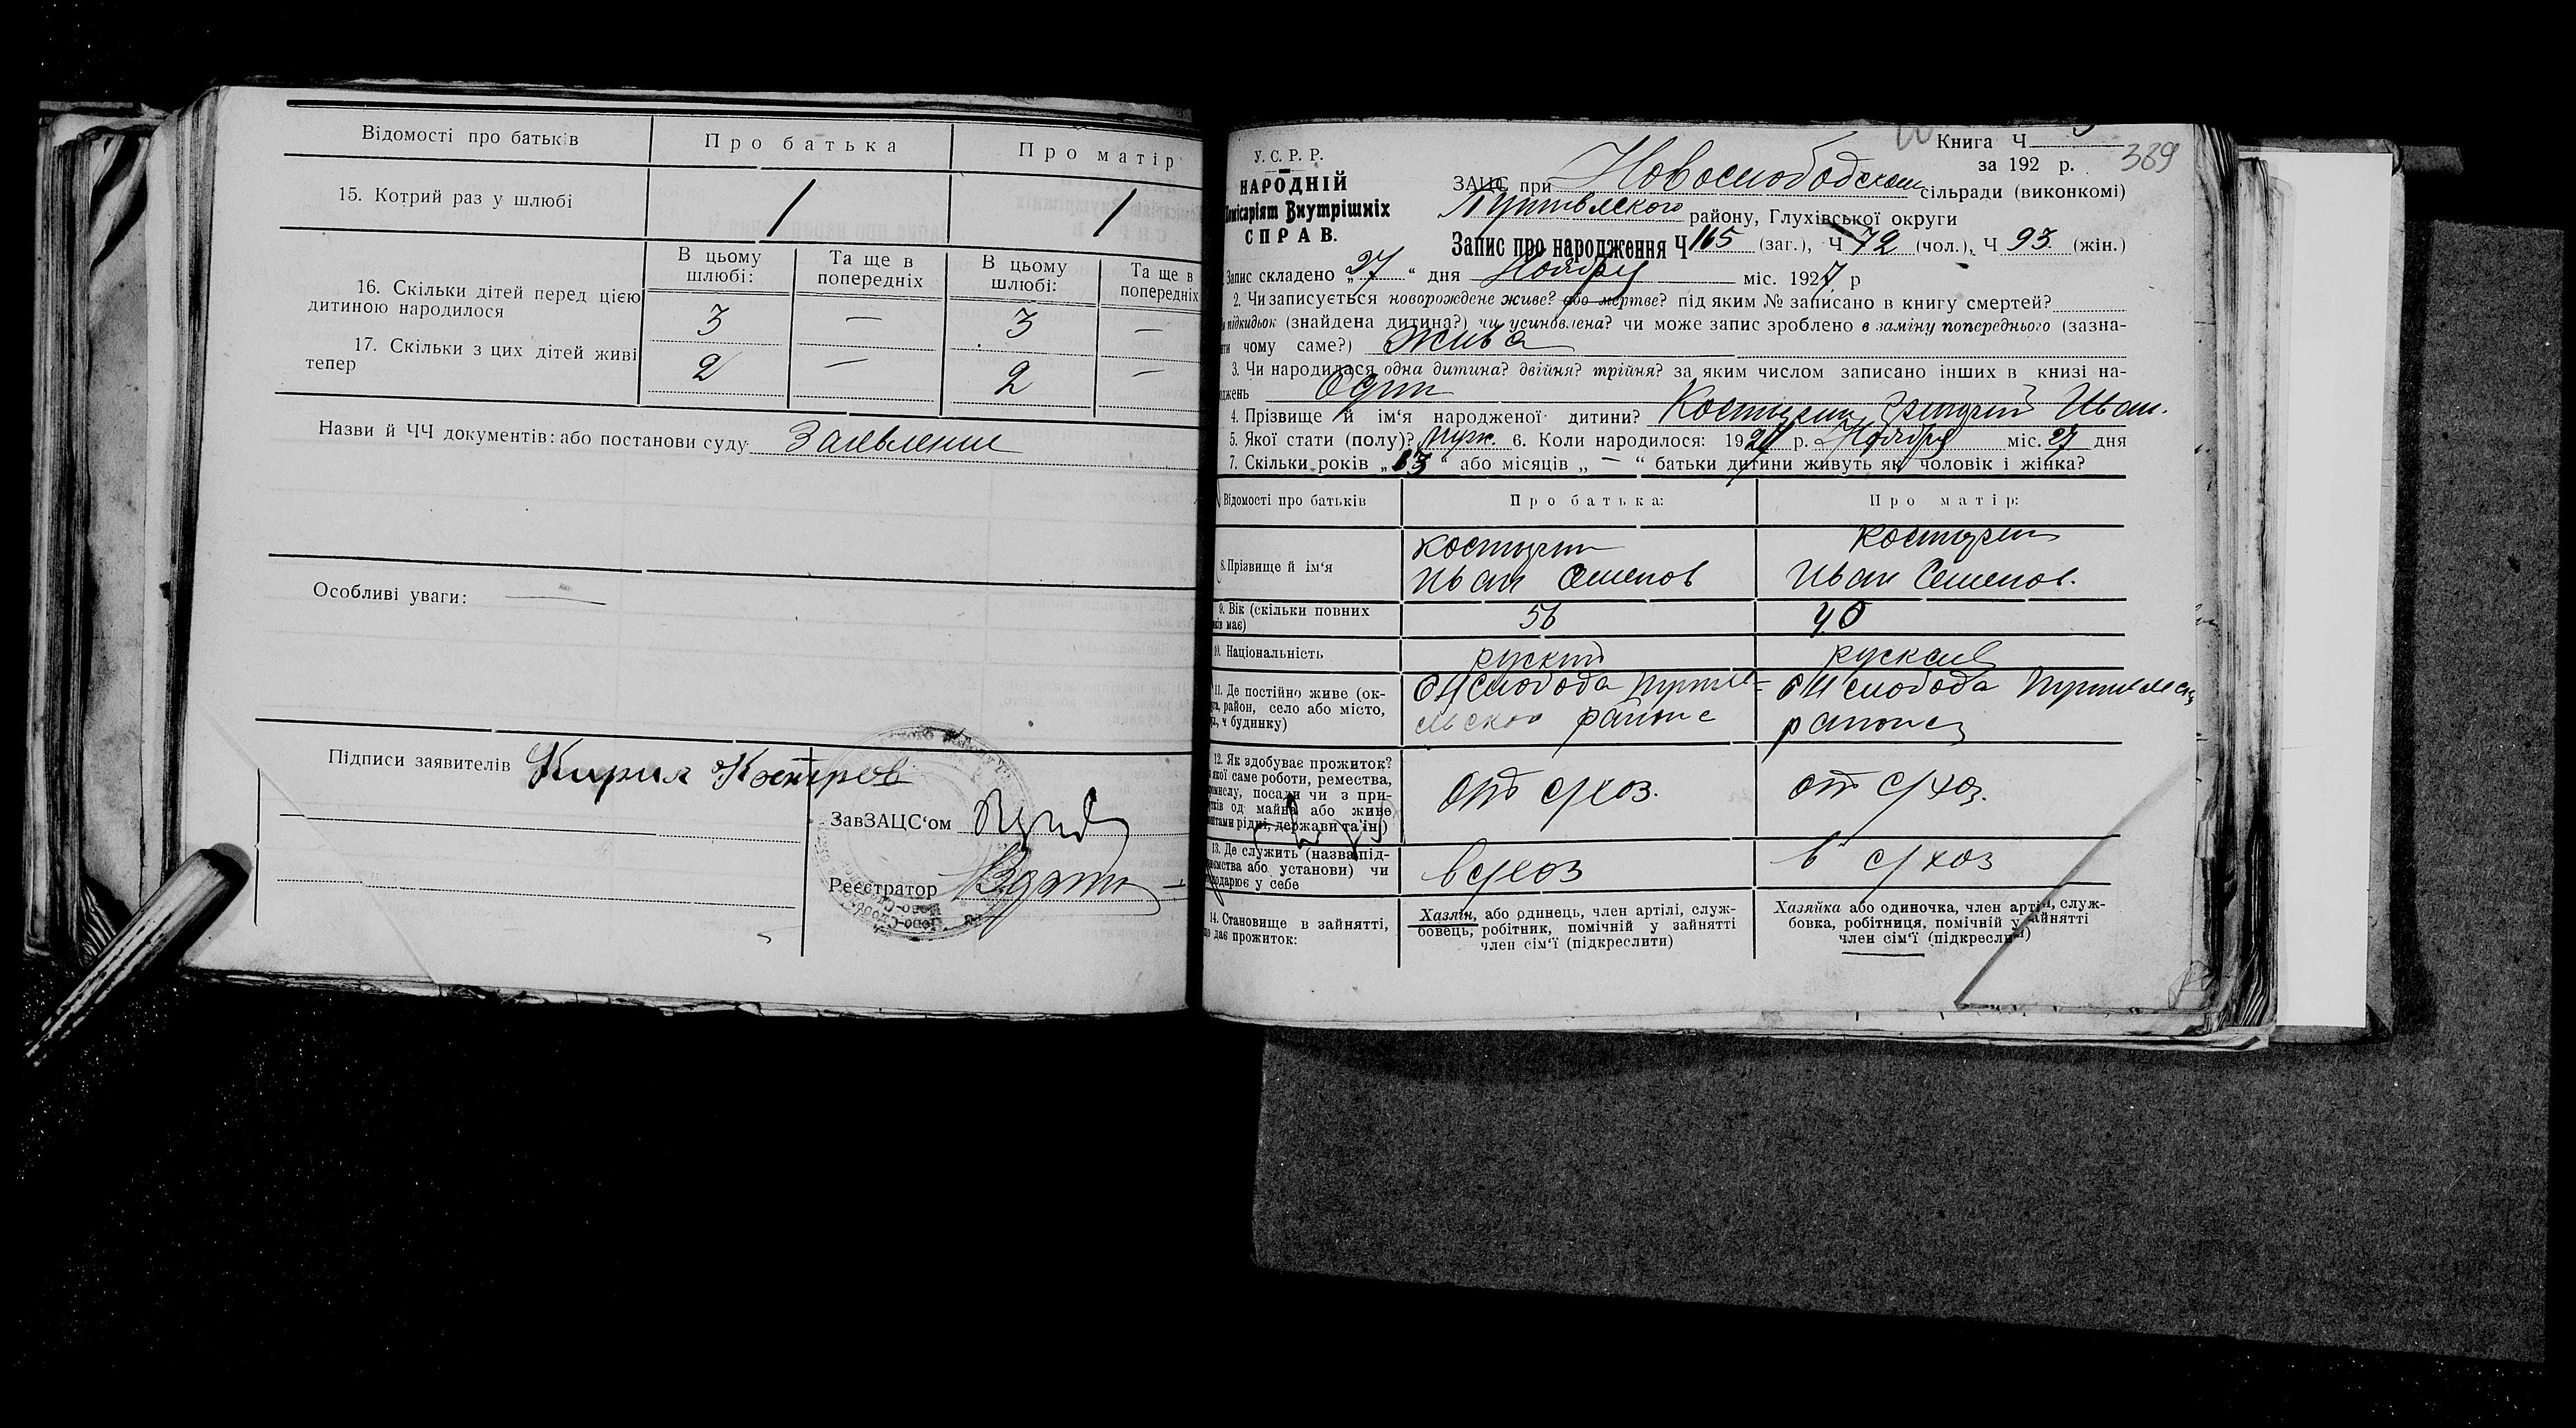 Відомості про батьків
Про батька
Про матір
15. Котрий раз у шлюбі
/
/
В цьому шлюбі:
Та ще в попередніх
В цьому шлюбі:
Та ще в попередніх
16. Скільки дітей перед цією
дитиною народилося
3
—
3
—
17. Скільки з цих дітей живі
тепер
2
—
2
—
Назви й ЧЧ документів: або постанови суду Заявление
Особливі уваги: —
Підписи заявителів Кирил
ЗавЗАЦС‘ом
Реєстратор
У. С. Р. Р.
НАРОДНІЙ
місаріят Внутрішніх
СПРАВ.
Книга Ч
за 192 р.
389
ЗАЦС при Новослободском сільради (виконкомі)
Путивлского району, Глухівської округи
Запис про народження Ч 165 (заг.), Ч 72 (чол.), Ч 93 (жін.)
Запис складено „27“ дня Ноября міс. 1927 р
2. Чи записується новорождене живе? або мертве? під яким № записано в книгу смертей?
підкидьок (знайдена дитина?) чи усиновлена? чи може запис зроблено в заміну попереднього (зазна-
чому саме?) Жива
3. Чи народилася одна дитина? двійня? трійня? за яким числом записано інших в книзі на-
джень Один
4. Прізвище й ім‘я народженої дитини? Иван.
5. Якої стати (полу)? муж. 6. Коли народилося: 192 р. Ноября міс. 27 дня
7. Скільки років „13“ або місяців „—“ батьки дитини живуть як чоловік і жінка?
Відомості про батьків
Про батька:
Про матір:
8. Прізвище й ім‘я
Иван Семенов
Иван Семенов.
9. Вік (скільки повних
ків має)
56
40
10. Національність
руский
руская
11. Де постійно живе (ок-
район, село або місто,
ч будинку)
слобода
районе
слобода
района
12. Як здобуває прожиток?
якої саме роботи, ремества,
посади чи з при-
од майна або живе
рідні, держави та ін.)
от с/хоз.
от с/хоз.
13. Де служить (назва під-
або установи) чи
у себе
в с/хоз
в с/хоз
14. Становище в зайнятті,
дає прожиток:
Хазяїн, або одинець, член артілі, служ-
бовець, робітник, помічній у зайнятті
член сім‘ї (підкреслити)
Хазяйка або одиночка, член артілі, служ-
бовка, робітниця, помічній у зайнятті
член сім‘ї (підкреслити)